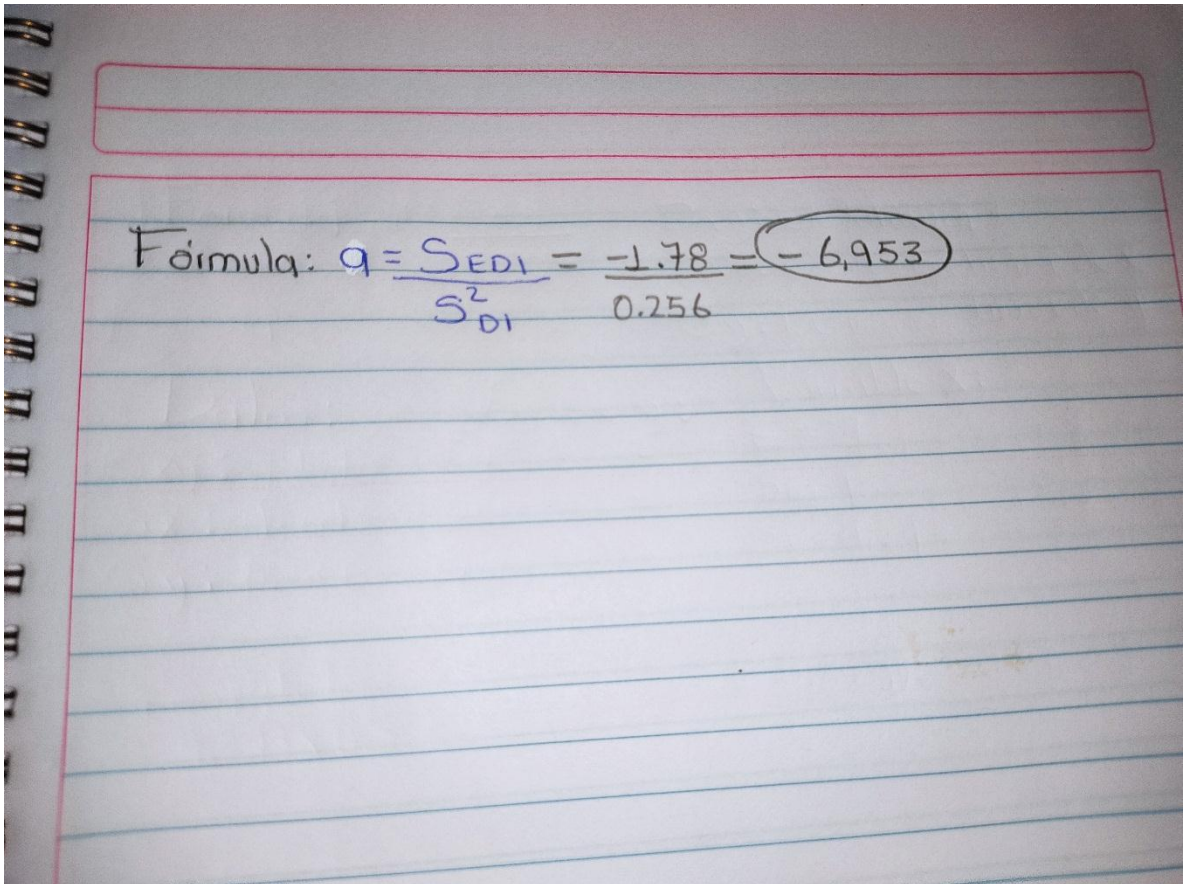 Fórmula: a = SEDI / S²DI = -1.78 / 0.256 = - 6,953